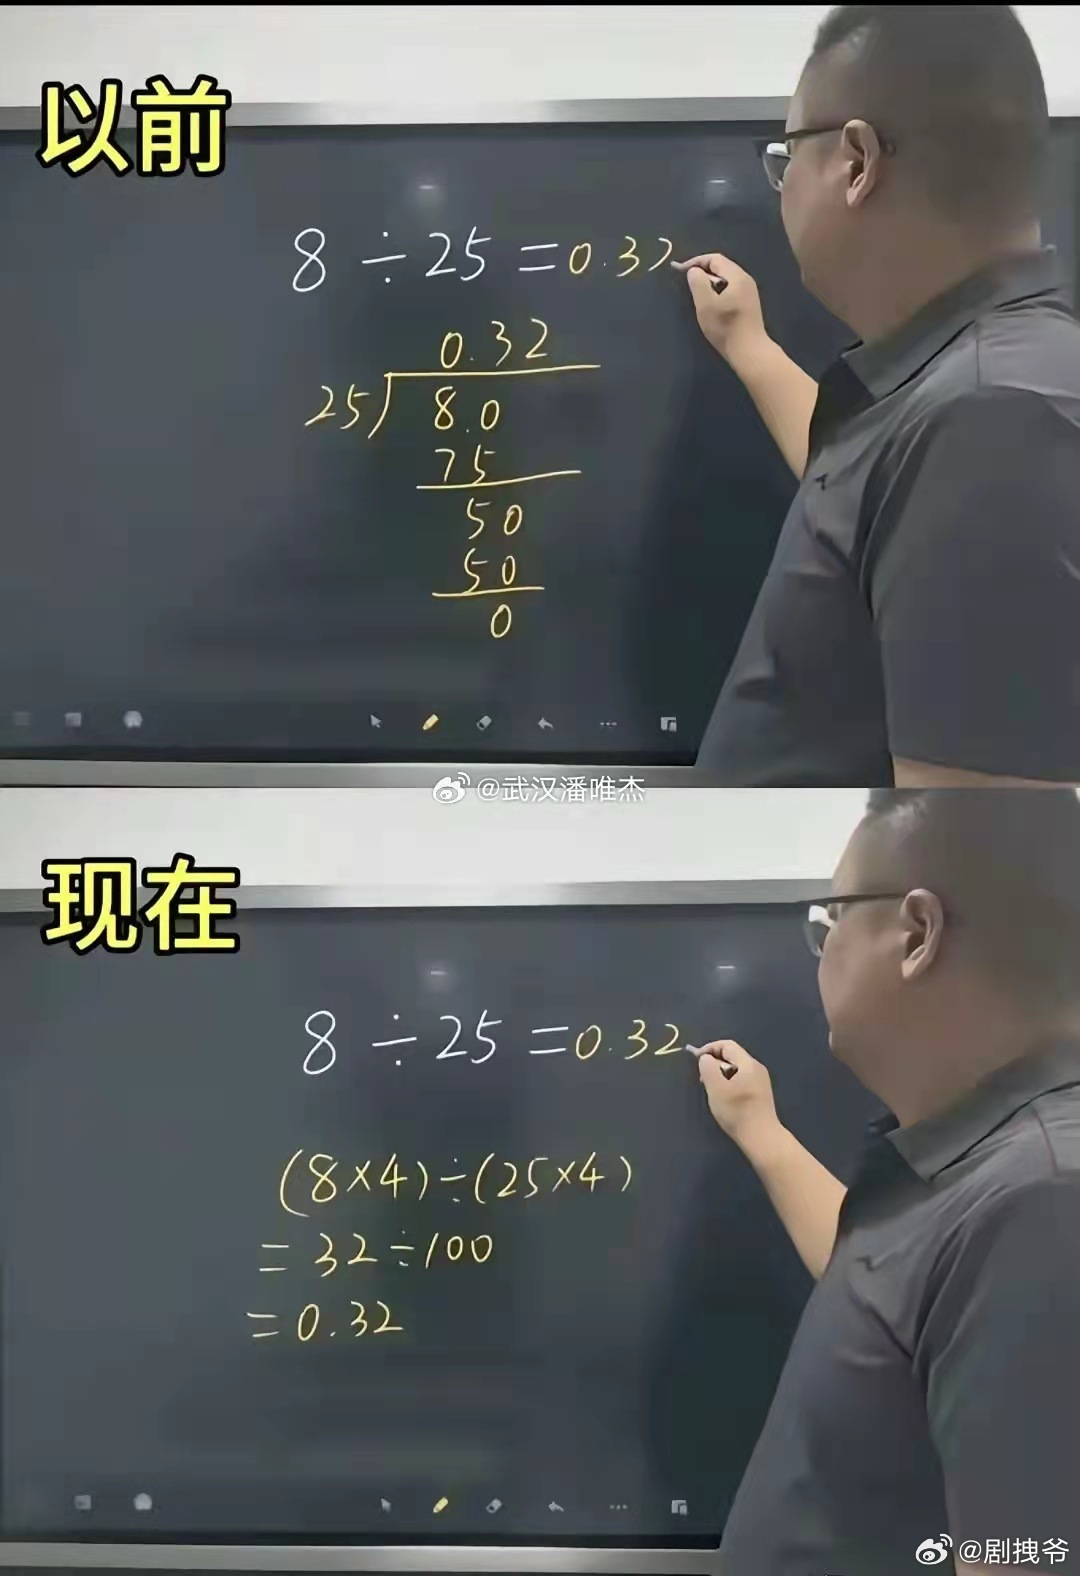 以前
8 ÷ 25 = 0.32
0.32
25) 8.0
75
50
50
0
@武汉潘唯杰
现在
8 ÷ 25 = 0.32
(8×4)÷(25×4)
= 32÷100
= 0.32
@剧拽爷